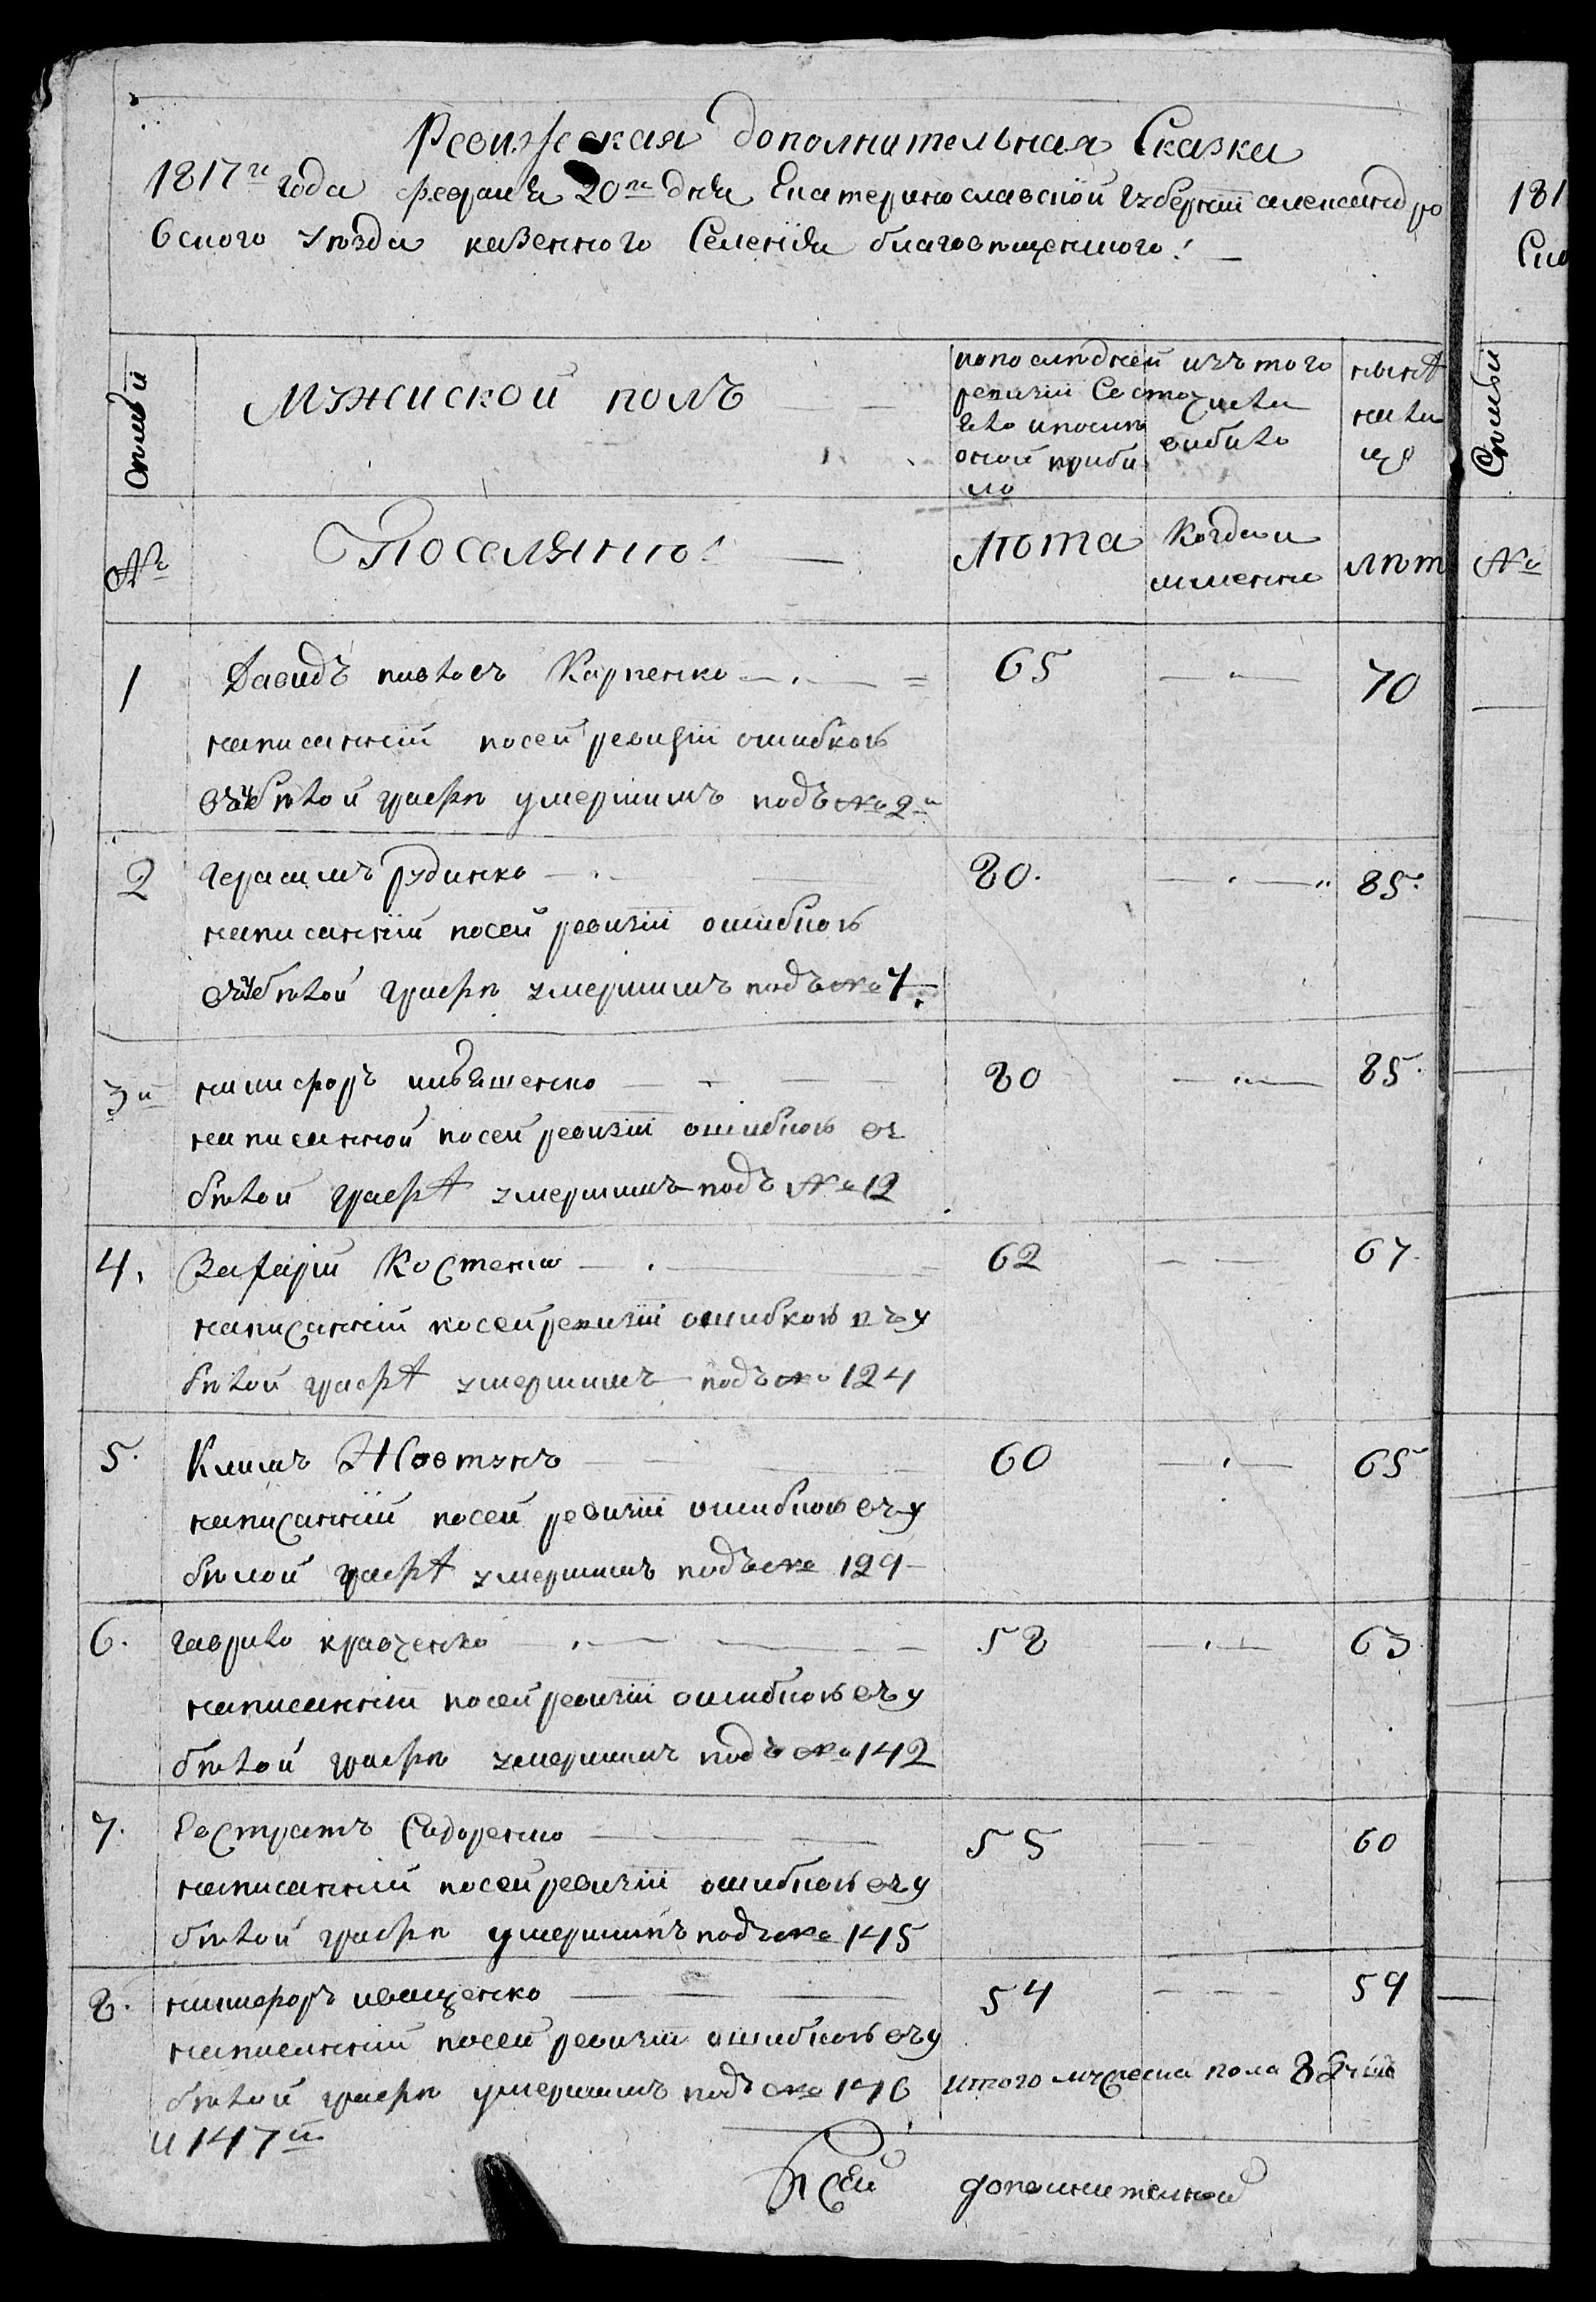 Ревизская дополнительная Сказка
1817го года февраля 20го дня Екатеринославской губернии александро
вского уезда казенного Селения благовещенского:
Семьи
мужиской полъ
по последней
ревизии Состо
яло и после
оной прибы
ло
изъ того
числа
выбыло
ныне
на ли
цо
№
Поселяне:
лета
Когда и
мменно
летъ
1
Давидъ павловъ Карпенко
65
70
написанній по сей ревизіи ошибкою
въ убылой графе умершимъ подъ № 2м
2
герасимъ рудинко
80.
85.
написанній по сей ревизіи ошибкою
въ убылой графе умершимъ подъ № 7
3й
никифоръ
80
85.
написанной по сей ревизіи ошибкою въ
былой графѣ умершимъ подъ № 12
4.
Захарій Костенко
62
67.
написанній по сей ревизіи ошибкою въ у
былой графѣ умершимъ подъ № 124
5.
Климъ Жовтунъ
60
65
написанній по сей ревизіи ошибкою въ у
былой графѣ умершимъ подъ № 129
6.
гаврило кравченко
58
63
написанній по сей ревизіи ошибкою въ у
былой графе умершимъ подъ № 142
7.
Евстратъ Сидоренко
55
60
написанній по сей ревизіи ошибкою въ у
былой графе умершимъ подъ № 145
8.
никифоръ иващенко
54
59
написанній по сей ревизіи ошибкою въ у
былой графе умершимъ подъ № 146
и 147м
итого мужеска пола 8
В Сей дополнительной
181
Семьи
№